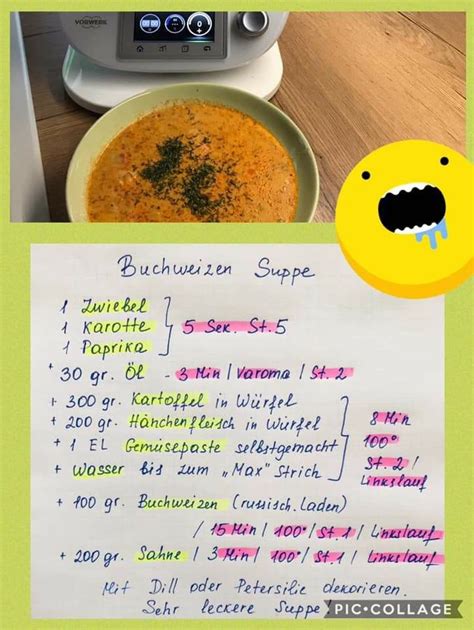 VORWERK
Buchweizen Suppe
1 Zwiebel
1 Karotte
1 Paprika
5 Sek. St.5
+ 30 gr. Öl - 3 Min / Varoma / St. 2
+ 300 gr. Kartoffel in Würfel
+ 200 gr. Hänchenfleisch in Würfel
+ 1 EL Gemüsepaste selbstgemacht
+ Wasser bis zum „Max" Strich
8 Min
100°
St. 2 /
Linkslauf
+ 100 gr. Buchweizen (russisch. Laden)
/ 15 Min / 100° / St. 1 / Linkslauf
+ 200 gr. Sahne / 3 Min / 100° / St. 1 / Linkslauf
Mit Dill oder Petersilie dekorieren.
Sehr leckere Suppe
PIC•COLLAGE